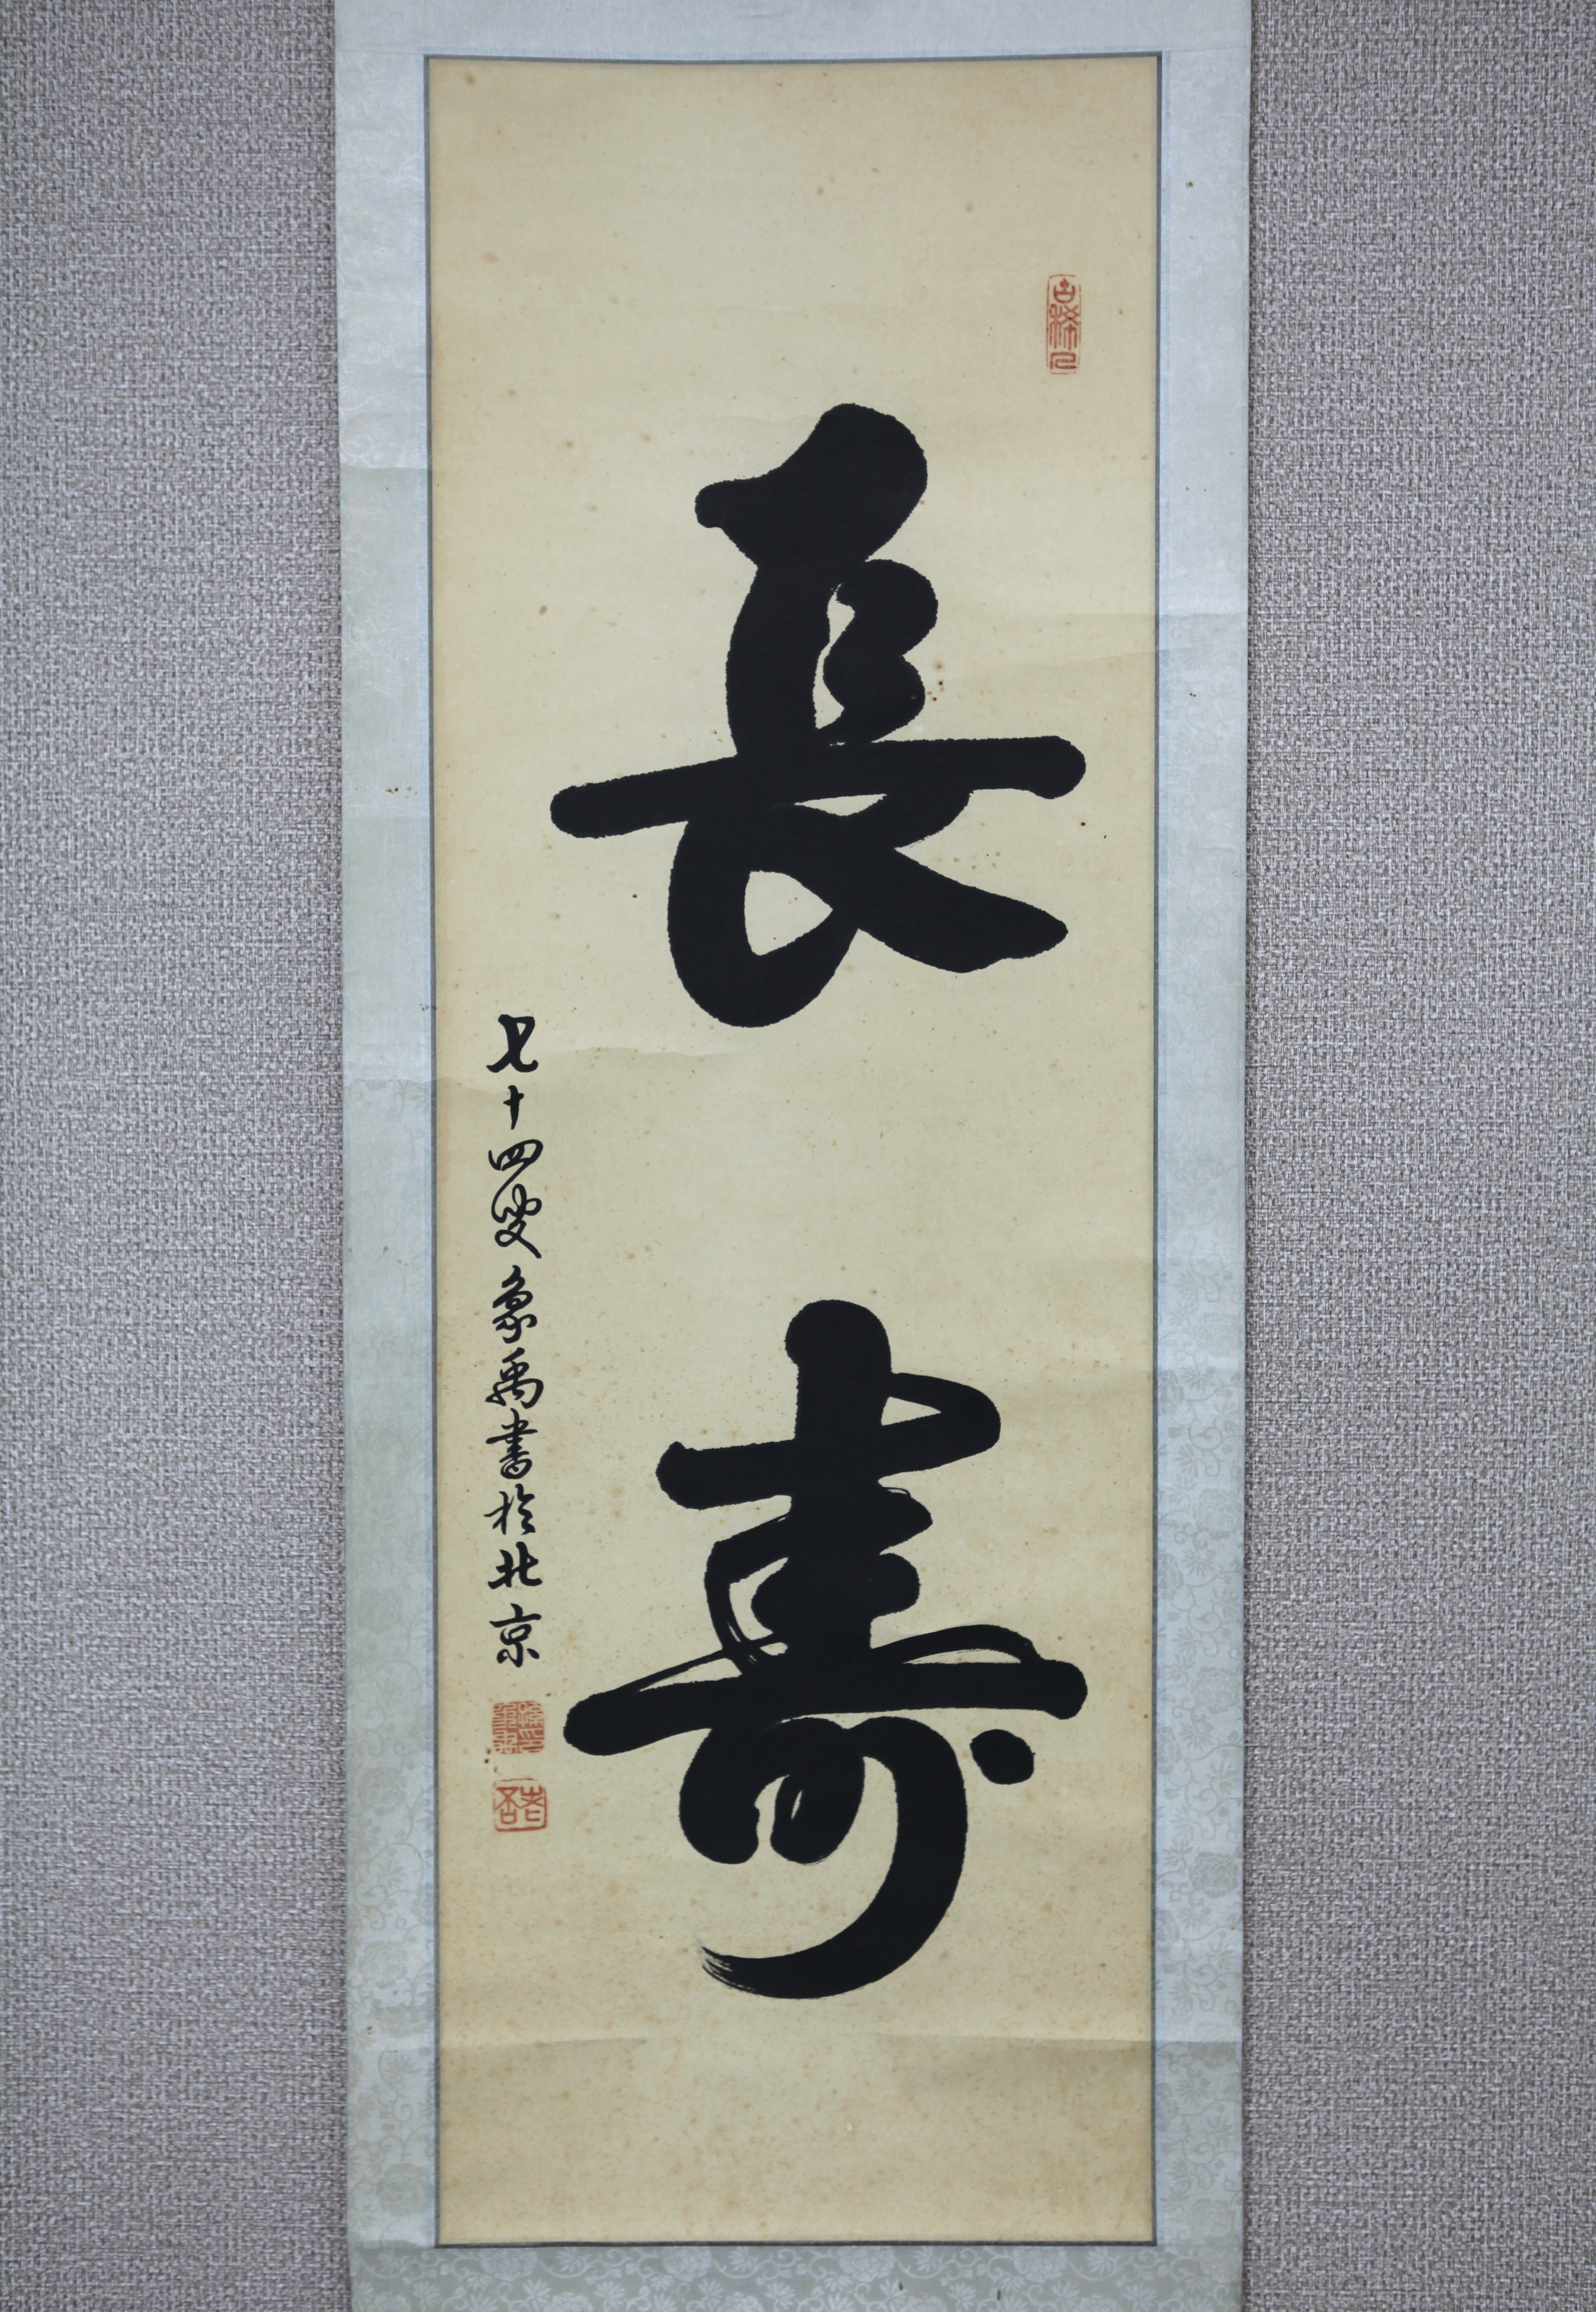 長壽
七十四叟象禹書於北京